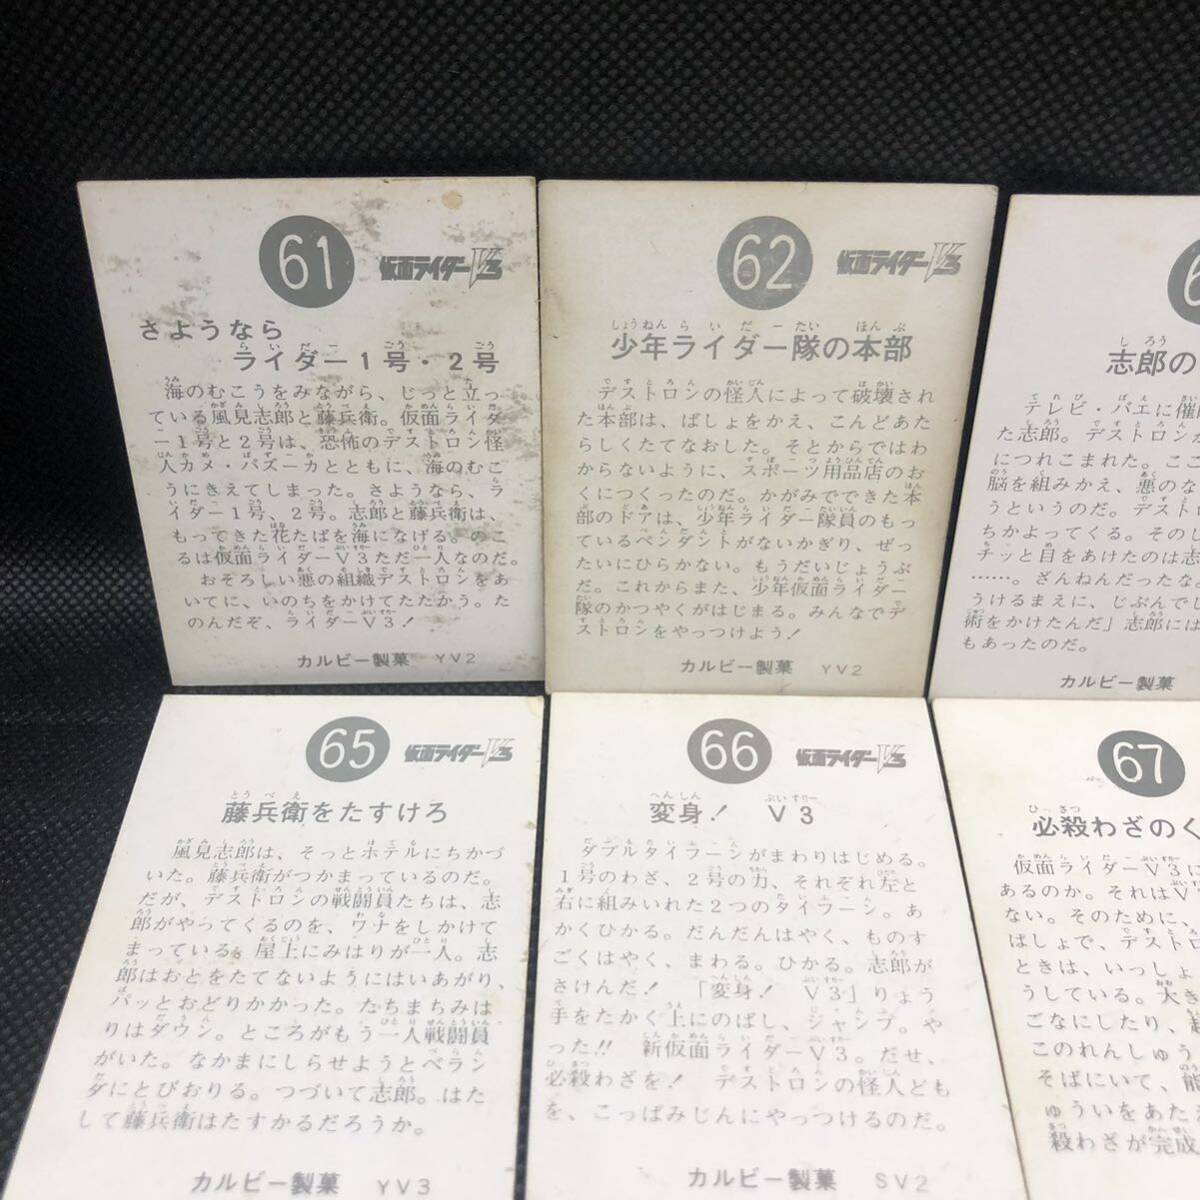 61
仮面ライダーV3
さようなら
ライダー1号・2号
海のむこうをみながら、じっと立っ
ている風見志郎と藤兵衛。仮面ライダ
ー1号と2号は、恐怖のデストロン怪
人カメ・バズーカとともに、海のむこ
うにきえてしまった。さようなら、ラ
イダー1号、2号。志郎と藤兵衛は、
もってきた花たばを海になげる。のこ
るは仮面ライダーV3ただ一人なのだ。
おそろしい悪の組織デストロンをあ
いてに、いのちをかけてたたかう。た
のんだぞ、ライダーV3!
カルビー製菓 YV2
62
仮面ライダーV3
少年ライダー隊の本部
デストロンの怪人によって破壊され
た本部は、ばしょをかえ、こんどあた
らしくたてなおした。そとからではわ
からないように、スポーツ用品店のお
くにつくったのだ。かがみでできた本
部のドアは、少年ライダー隊員のもっ
ているペンダントがないかぎり、ぜっ
たいにひらかない。もうだいじょうぶ
だ。これからまた、少年仮面ライダー
隊のかつやくがはじまる。みんなでデ
ストロンをやっつけよう!
カルビー製菓 YV2
志郎の
テレビ・バエに催
た志郎。デストロン
につれこまれた。ここ
脳を組みかえ、悪のな
うというのだ。デストロ
ちかよってくる。そのし
チッと目をあけたのは志
……。ざんねんだったな
うけるまえに、じぶんでし
術をかけたんだ」志郎には
もあったのだ。
カルビー製菓
65
仮面ライダーV3
藤兵衛をたすけろ
風見志郎は、そっとホテルにちかづ
いた。藤兵衛がつかまっているのだ。
だが、デストロンの戦闘員たちは、志
郎がやってくるのを、ワナをしかけて
まっている。屋上にみはりが一人。志
郎はおとをたてないようにはいあがり、
パッとおどりかかった。たちまちみは
りはダウン。ところがもう一人戦闘員
がいた。なかまにしらせようとベラン
ダにとびおりる。つづいて志郎。はた
して藤兵衛はたすかるだろうか。
カルビー製菓 YV3
66
仮面ライダーV3
変身! V3
ダブルタイフーンがまわりはじめる。
1号のわざ、2号の力、それぞれ左と
右に組みいれた2つのタイフーン。あ
かくひかる。だんだんはやく、ものす
ごくはやく、まわる。ひかる。志郎が
さけんだ! 「変身! V3」りょう
手をたかく上にのばし、ジャンプ。や
った!! 新仮面ライダーV3。だせ、
必殺わざを! デストロンの怪人ども
を、こっぱみじんにやっつけるのだ。
カルビー製菓 SV2
67
必殺わざのく
仮面ライダーV3に
あるのか。それはV
ない。そのために、
ばしょで、デスト
ときは、いっしょ
うしている。大き
ごなにしたり、
このれんしゅう
そばにいて、
ゅういをあた
殺わざが完成